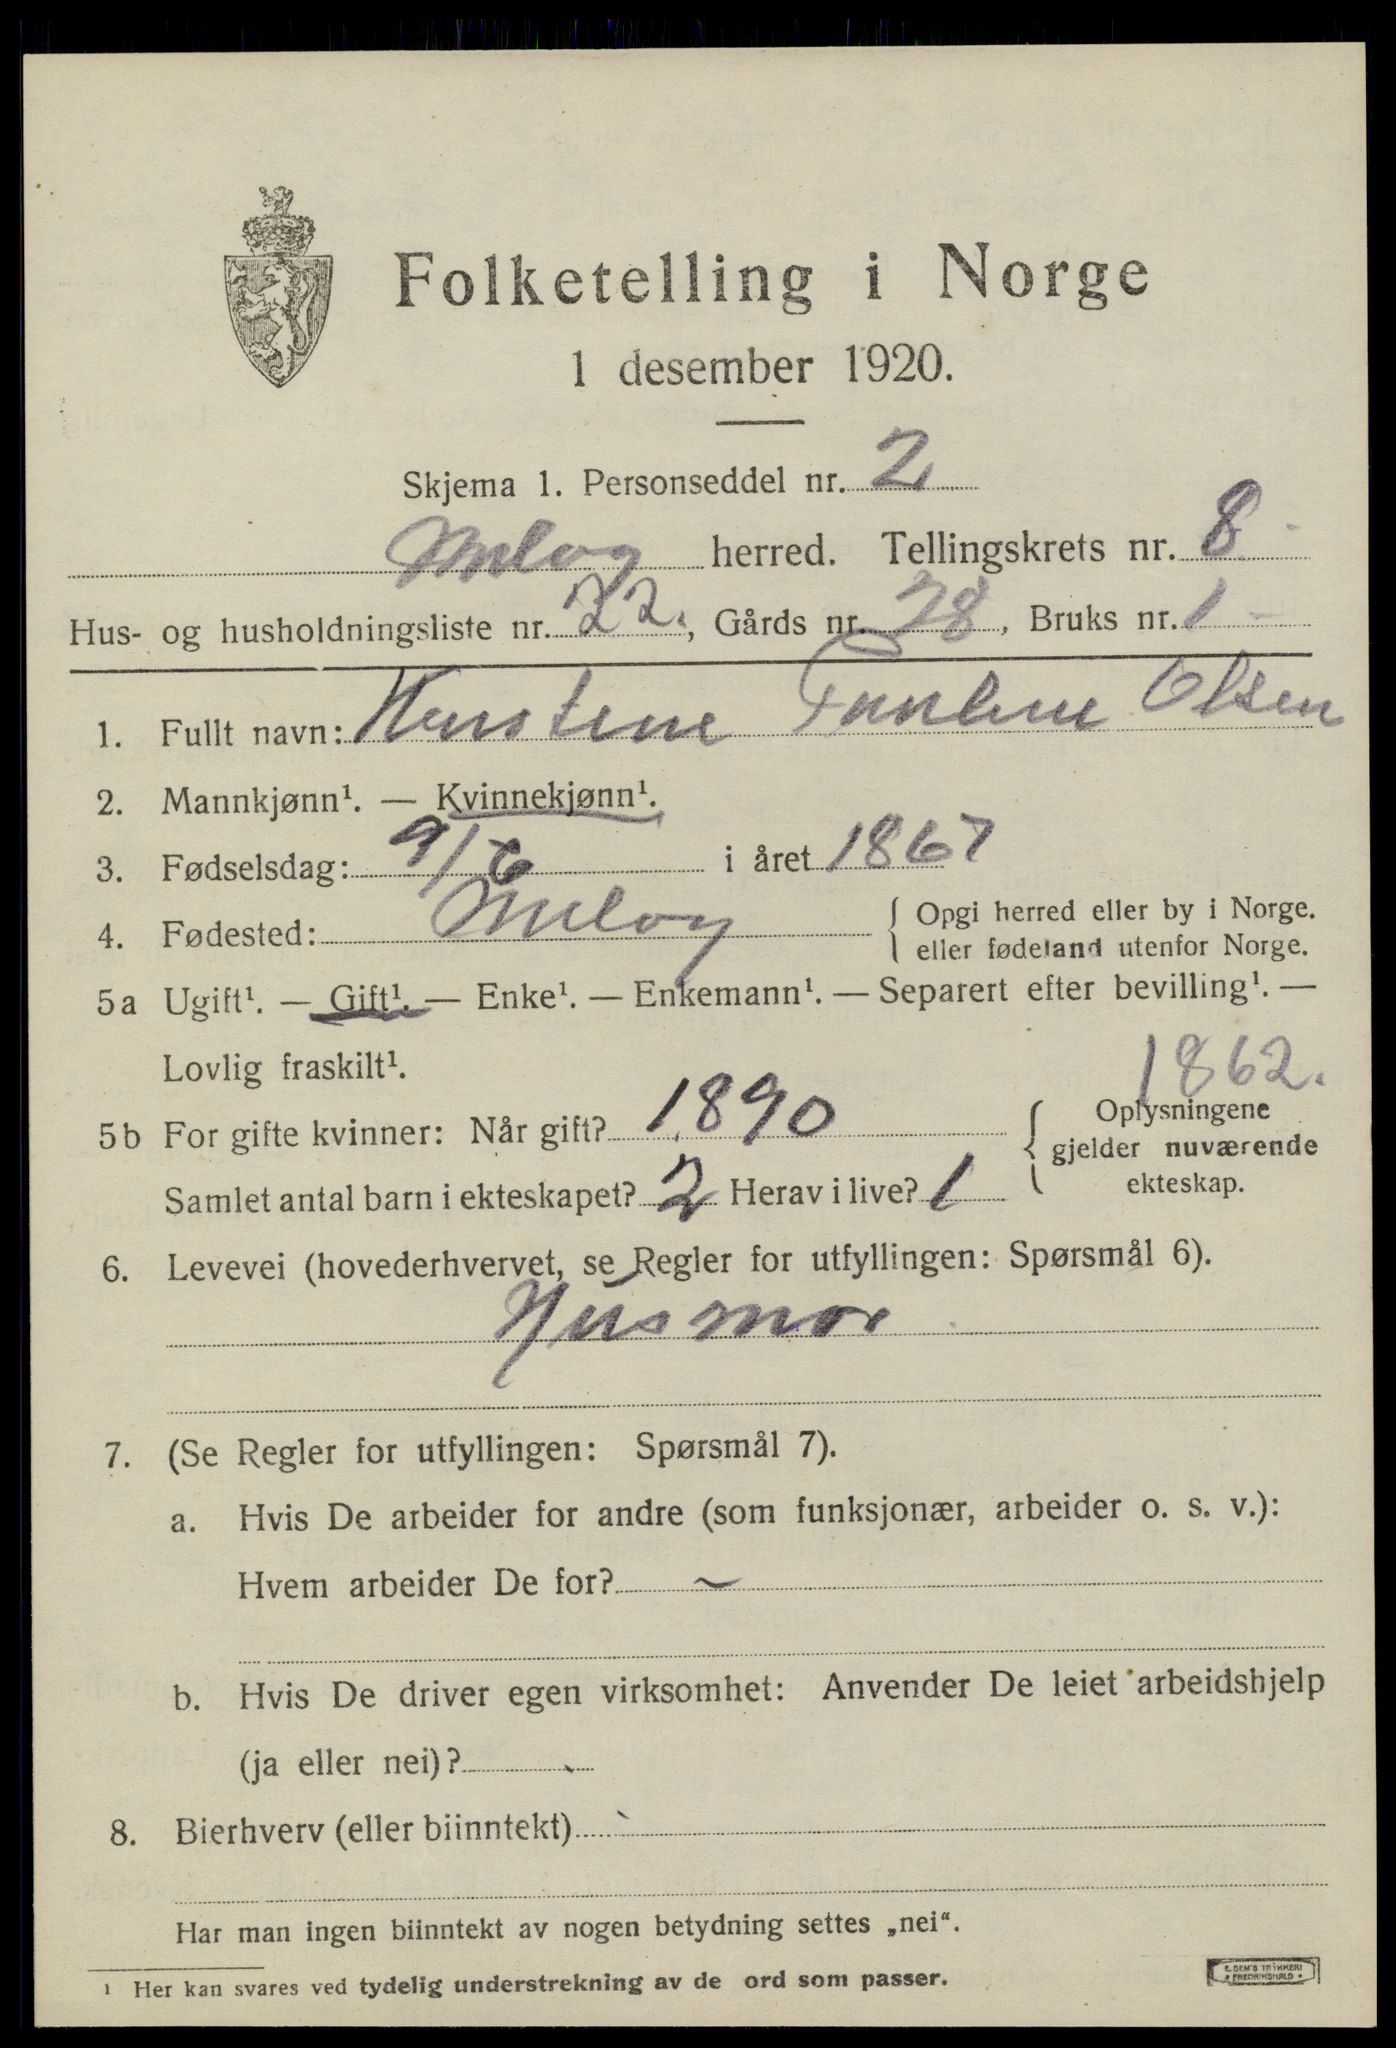 Folketelling i Norge
1 desember 1920.
Skjema 1. Personseddel nr. 2
Meløy herred. Tellingskrets nr. 8
Hus- og husholdningsliste nr. 22., Gårds nr. 28, Bruks nr. 1
1. Fullt navn: Olsen
2. Mannkjønn¹. — Kvinnekjønn¹.
3. Fødselsdag: 9/6 i året 1867
4. Fødested: Meløy { Opgi herred eller by i Norge.
eller fødeland utenfor Norge.
5a Ugift¹. — Gift¹. — Enke¹. — Enkemann¹. — Separert efter bevilling¹. —
Lovlig fraskilt¹.
1862.
5b For gifte kvinner: Når gift? 1890 { Oplysningene
gjelder nuværende
ekteskap.
Samlet antal barn i ekteskapet? 2 Herav i live? 1
6. Levevei (hovederhvervet, se Regler for utfyllingen: Spørsmål 6).
Husmor
7. (Se Regler for utfyllingen: Spørsmål 7).
a. Hvis De arbeider for andre (som funksjonær, arbeider o. s. v.):
Hvem arbeider De for? ~
b. Hvis De driver egen virksomhet: Anvender De leiet arbeidshjelp
(ja eller nei)?
8. Bierhverv (eller biinntekt)
Har man ingen biinntekt av nogen betydning settes „nei“.
¹ Her kan svares ved tydelig understrekning av de ord som passer.
E. SEM'S TRYKKERI
• FREDRIKSHALD •